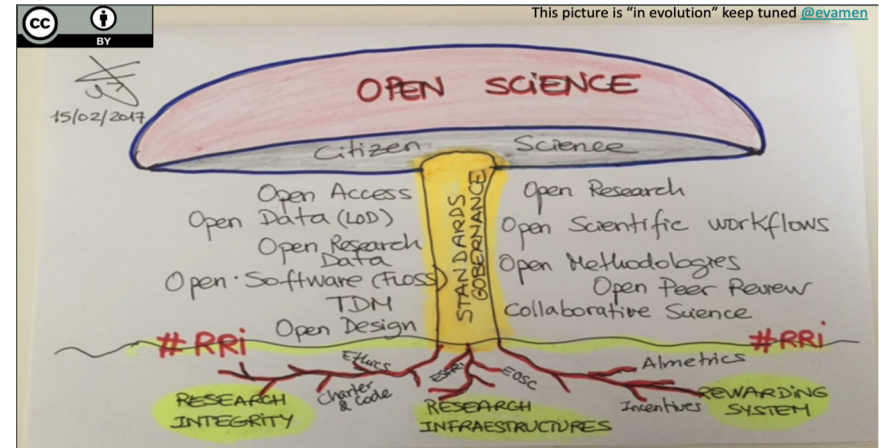 cc
BY
This picture is “in evolution” keep tuned @evamen
15/02/2017
OPEN SCIENCE
Citizen Science
Open Access
Open Data (LOD)
Open Research
Data
Open·Software (FLOSS)
TDM
Open Design
STANDARDS
GOBERNANCE
Open Research
Open Scientific workflows
Open Methodologies
Open Peer Review
Collaborative Science
#RRi
#RRi
Ethics
Charter
& Code
RESEARCH
INTEGRITY
ESFRI
EOSC
RESEARCH
INFRAESTRUCTURES
Almetrics
Incentives
REWARDING
SYSTEM